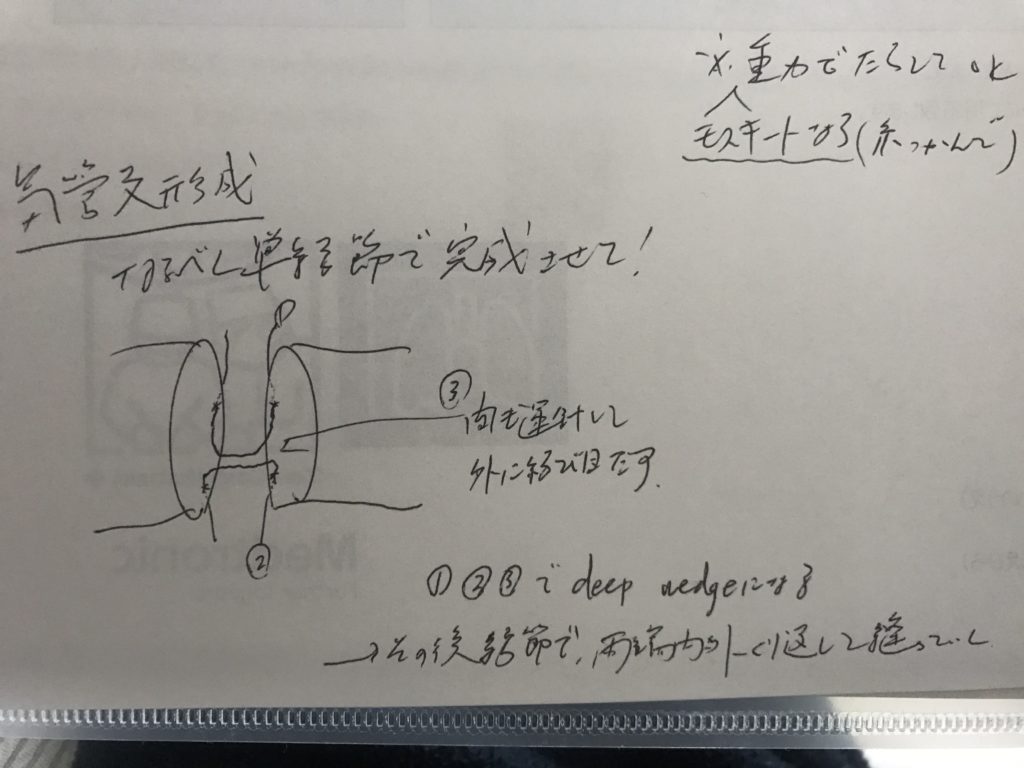 ※重力でたらして OK
モスキートなる(糸つかんで)
気管支形成
なるべく単結節で完成させて!
①
③
向き運針して
外に結び目だす。
②
①②③で deep wedgeになる
→その後結節で、両端から外くり返して縫っていく
Medtronic